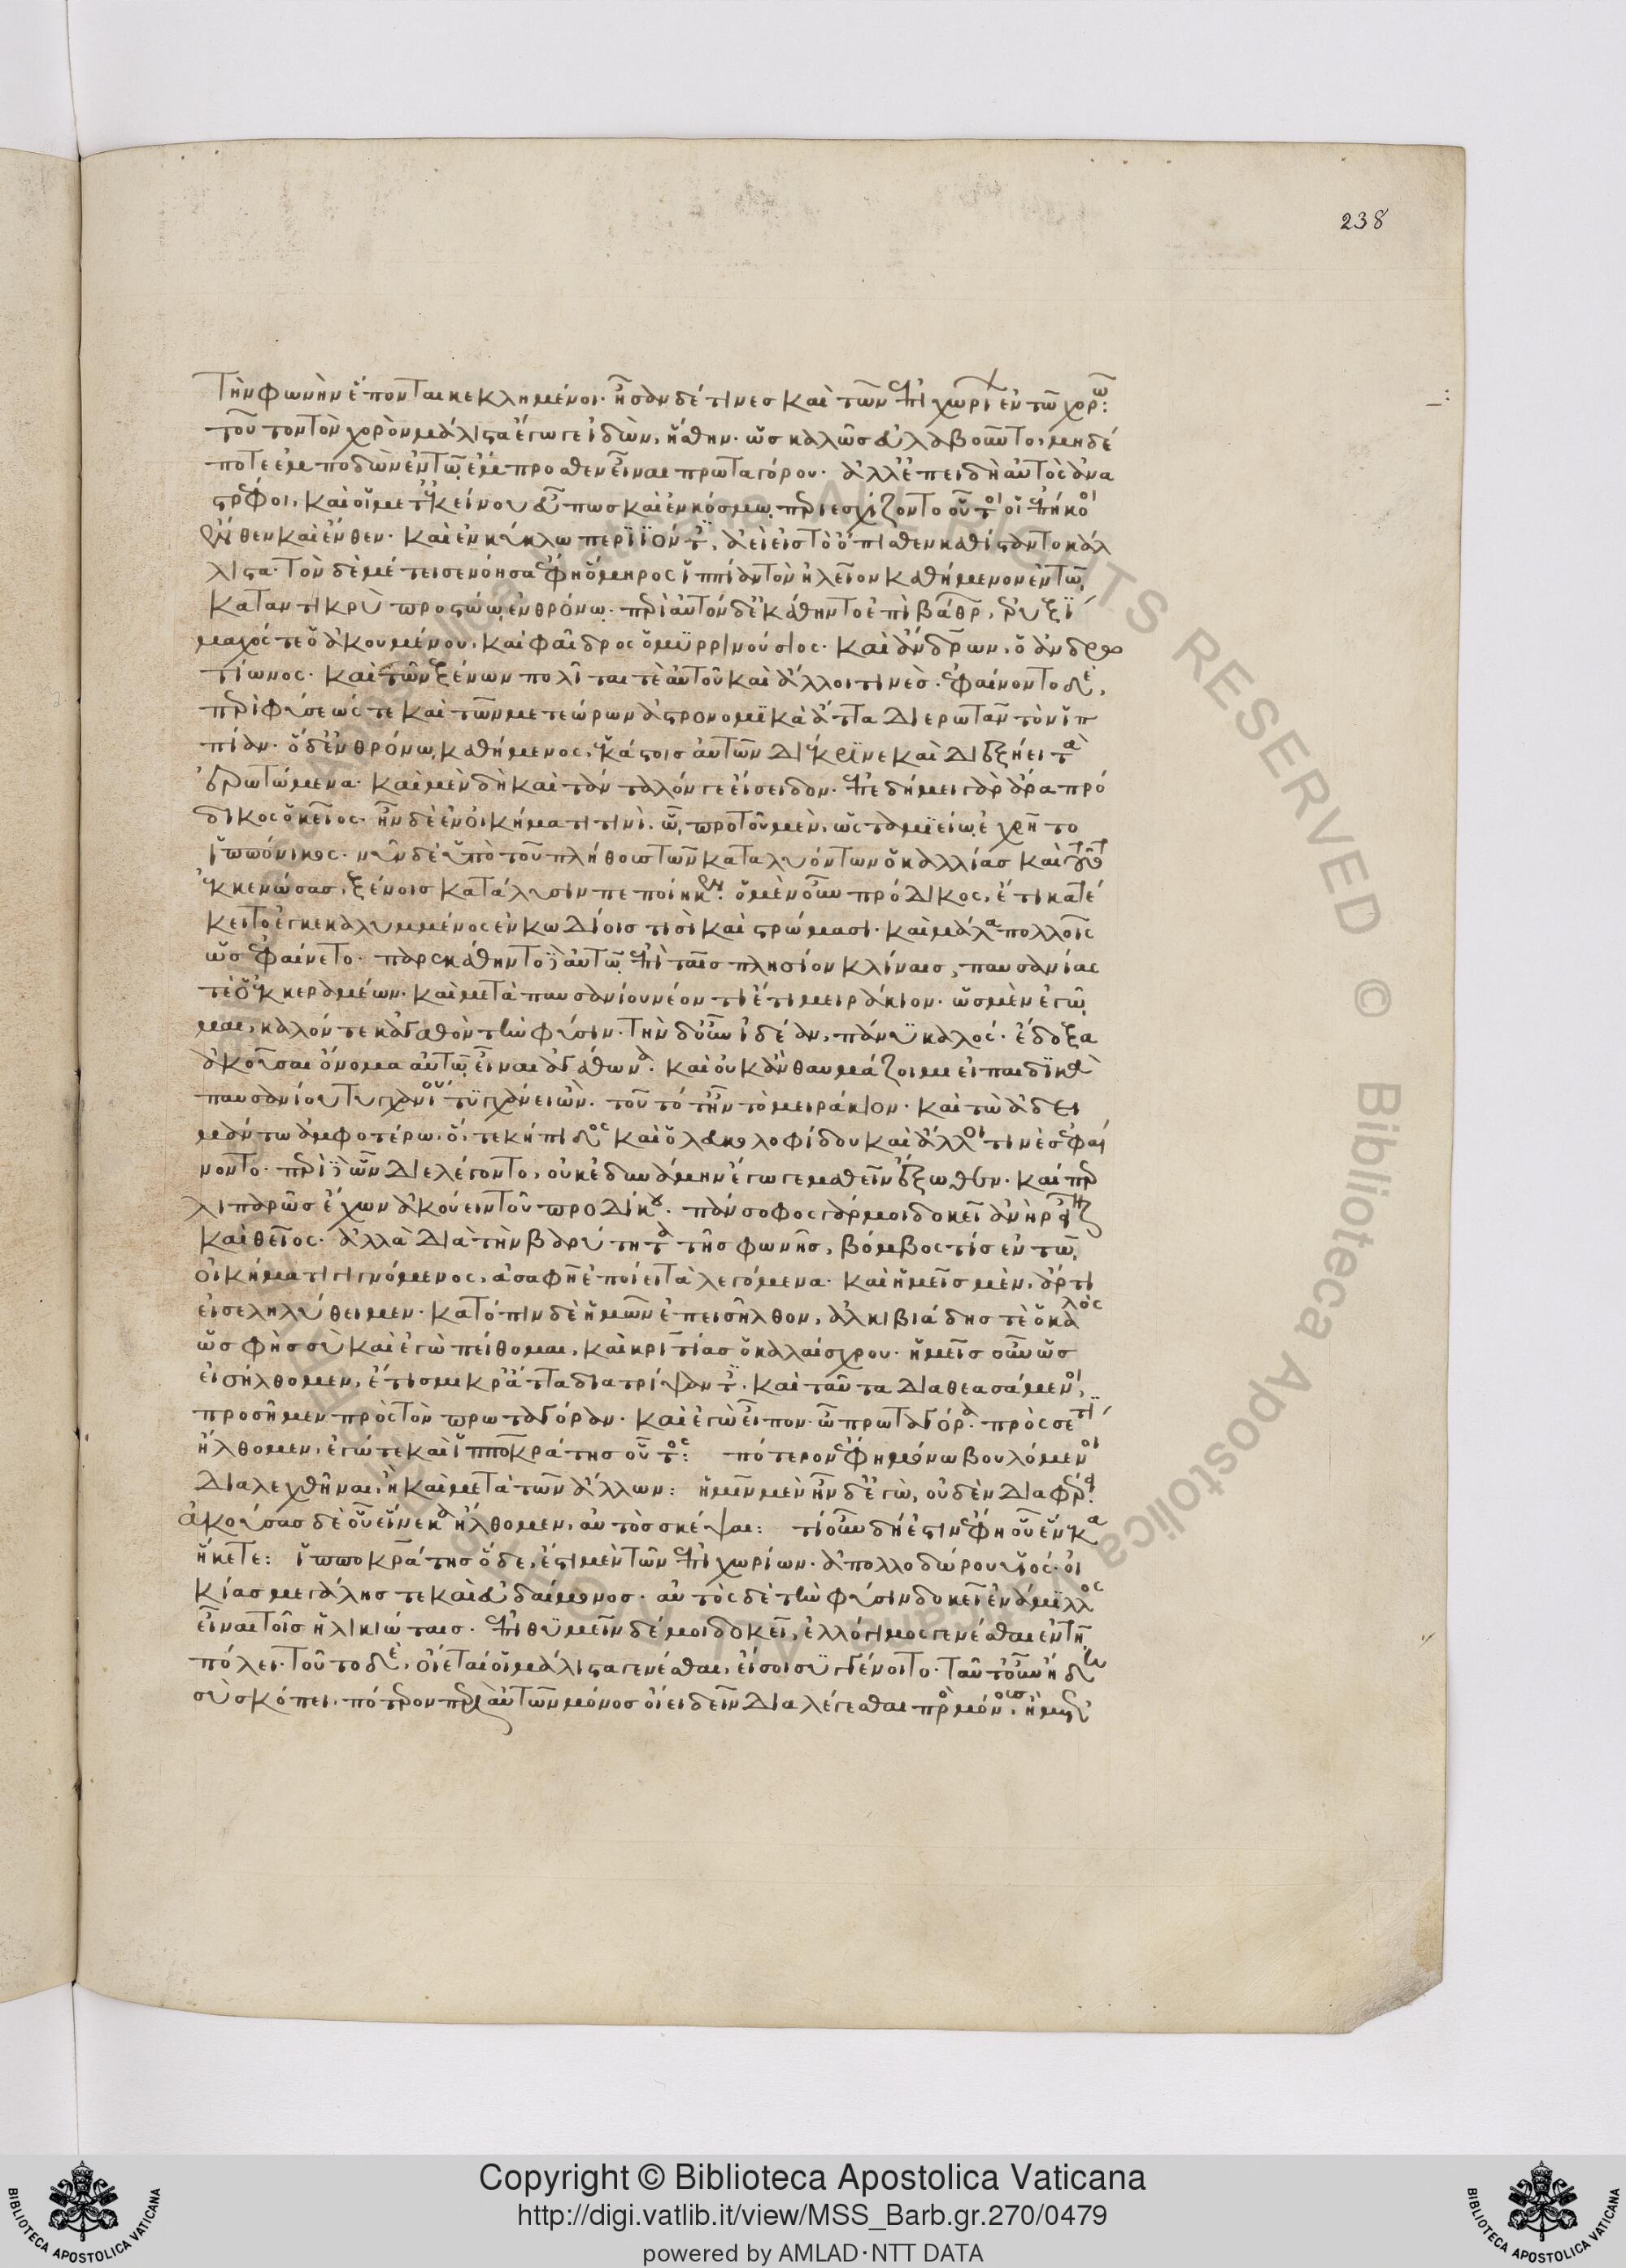 238
τὴν φωνὴν ἕπονται κεκλημένοι· ἦσαν δέ τινες καὶ τῶν ἐπιχωρί ἐν τῶ χορῶ:
τοῦτον τὸν χορὸν μάλιστα ἔγωγε ἰδὼν, ἥσθην· ὡς καλῶς εὐλαβοῦντο, μηδέ
ποτε ἐμποδὼν ἐν τῶ ἔμπροσθεν εἶναι πρωταγόρου· ἀλλ' ἐπειδὴ αὐτὸς ἀνα
στρέφοι, καὶ οἱ μετ' ἐκείνου εὖ πως καὶ ἐν κόσμω περιεσχίζοντο οὗτοι οἱ ἐπήκοοι
ἔνθεν καὶ ἔνθεν· καὶ ἐν κύκλω περιϊόντες, ἀεὶ εἰς τὸ ὄπισθεν καθίσταντο κάλ
λιστα· τὸν δὲ μέτ' εἰσενόησα ἔφη ὅμηρος ἱππίαν τὸν ἠλεῖον καθήμενον ἐν τῶ
καταντικρὺ προστώω ἐν θρόνω· περὶ αὐτὸν δ' ἐκάθηντο ἐπὶ βάθρ, ἐρυξί
μαχός τε ὁ ἀκουμένου, καὶ φαῖδρος ὁ μυρρινούσιος· καὶ ἄνδρων, ὁ ἀνδρο
τίωνος· καὶ τῶν ξένων πολῖταί τε αὐτοῦ καὶ ἄλλοι τινές· ἐφαίνοντο δὲ,
περὶ φύσεώς τε καὶ τῶν μετεώρων ἀστρονομικὰ ἄττα διερωτᾶν τὸν ἱπ
πίαν· ὁ δ' ἐν θρόνω καθήμενος, ἑκάστοις αὐτῶν διέκρινε καὶ διεξήει τὰ
ἐρωτώμενα· καὶ μὲν δὴ καὶ τάνταλόν γε εἰσεῖδον· ἐπεδήμει γὰρ ἄρα πρό
δικος ὁ κεῖος· ἦν δὲ ἐν οἰκήματί τινι, ὧ, προτοῦ μὲν, ὡς ταμιείω ἐχρῆτο
ἱππόνικος· νῦν δὲ ὑπὸ τοῦ πλήθους τῶν καταλυόντων ὁ καλλίας καὶ τοῦτο
ἐκκενώσας, ξένοις κατάλυσιν πεποίηκεν· ὁ μὲν οὖν πρόδικος, ἔτι κατέ
κειτο ἐγκεκαλυμμένος ἐν κωδίοις τισὶ καὶ στρώμασι· καὶ μάλα πολλοῖς
ὡς ἐφαίνετο· παρεκάθηντο δὲ αὐτῶ ἐπὶ ταῖς πλησίον κλίναις, παυσανίας
τε ὁ ἐκ κεραμέων· καὶ μετὰ παυσανίου νέον τι ἔτι μειράκιον· ὡς μὲν ἐγῶ
μαι, καλόν τε κἀγαθὸν τὴν φύσιν· τὴν δ' οὖν ἰδέαν, πάνυ καλός· ἔδοξα
ἀκοῦσαι ὄνομα αὐτῶ εἶναι ἀγάθωνα· καὶ οὐκ ἂν θαυμάζοιμι εἰ παιδικὰ
παυσανίου τυγχάνει τυγχάνει ὤν· τοῦτό τ' ἦν τὸ μειράκιον· καὶ τὼ ἀδει
μάντω ἀμφοτέρω, ὅ, τε κήπιδος καὶ ὁ λευκολοφίδου καὶ ἄλλοι τινὲς ἐφαί
νοντο· περὶ δὲ ὧν διελέγοντο, οὐκ ἐδυνάμην ἔγωγε μαθεῖν ἔξωθεν· καίπερ
λιπαρῶς ἔχων ἀκούειν τοῦ προδίκου· πάνσοφος γάρ μοι δοκεῖ ἁνὴρ εἶναι
καὶ θεῖος· ἀλλὰ διὰ τὴν βαρύτητα τῆς φωνῆς, βόμβος τίς ἐν τῶ
οἰκήματι γιγνόμενος, ἀσαφῆ ἐποίει τὰ λεγόμενα· καὶ ἡμεῖς μὲν, ἄρτι
εἰσεληλύθειμεν· κατόπιν δὲ ἡμῶν ἐπεισῆλθον, ἀλκιβιάδης τε ὁ καλὸς
ὡς φὴς σὺ καὶ ἐγὼ πείθομαι, καὶ κριτίας ὁ καλαίσχρου· ἡμεῖς οὖν ὡς
εἰσήλθομεν, ἔτι σμίκρ' ἄττα διατρίψαντες, καὶ ταῦτα διαθεασάμενοι,
προσῆμεν πρὸς τὸν πρωταγόραν· καὶ ἐγὼ εἶπον· ὦ πρωταγόρα· πρὸς σέ τι
ἤλθομεν, ἐγώ τε καὶ ἱπποκράτης οὗτος: πότερον ἔφη μόνω βουλόμενοι
διαλεχθῆναι, ἢ καὶ μετὰ τῶν ἄλλων: ἡμῖν μὲν ἦν δ' ἐγὼ, οὐδὲν διαφέρει·
ἀκούσας δὲ οὗ εἵνεκα ἤλθομεν, αὐτὸς σκέψαι: τί οὖν δή ἐστιν ἔφη οὗ ἕνεκα
ἥκετε: ἱπποκράτης ὅδε, ἐστὶ μὲν τῶν ἐπιχωρίων· ἀπολλοδώρου υἱός· οἰ
κίας μεγάλης τε καὶ εὐδαίμονος· αὐτὸς δὲ τὴν φύσιν δοκεῖ ἐνάμιλλος
εἶναι τοῖς ἡλικιώταις· ἐπιθυμεῖν δέ μοι δοκεῖ, ἐλλόγιμος γενέσθαι ἐν τῆ
πόλει· τοῦτο δὲ, οἴεταί οἱ μάλιστα γενέσθαι, εἰ σοὶ συγγένοιτο· ταῦτ' οὖν ἤδη
σὺ σκόπει, πότερον περὶ αὐτῶν μόνος οἴει δεῖν διαλέγεσθαι πρὸς μόνους, ἢ μετ'
Copyright © Biblioteca Apostolica Vaticana
http://digi.vatlib.it/view/MSS_Barb.gr.270/0479
powered by AMLAD·NTT DATA
BIBLIOTECA APOSTOLICA VATICANA
BIBLIOTECA APOSTOLICA VATICANA